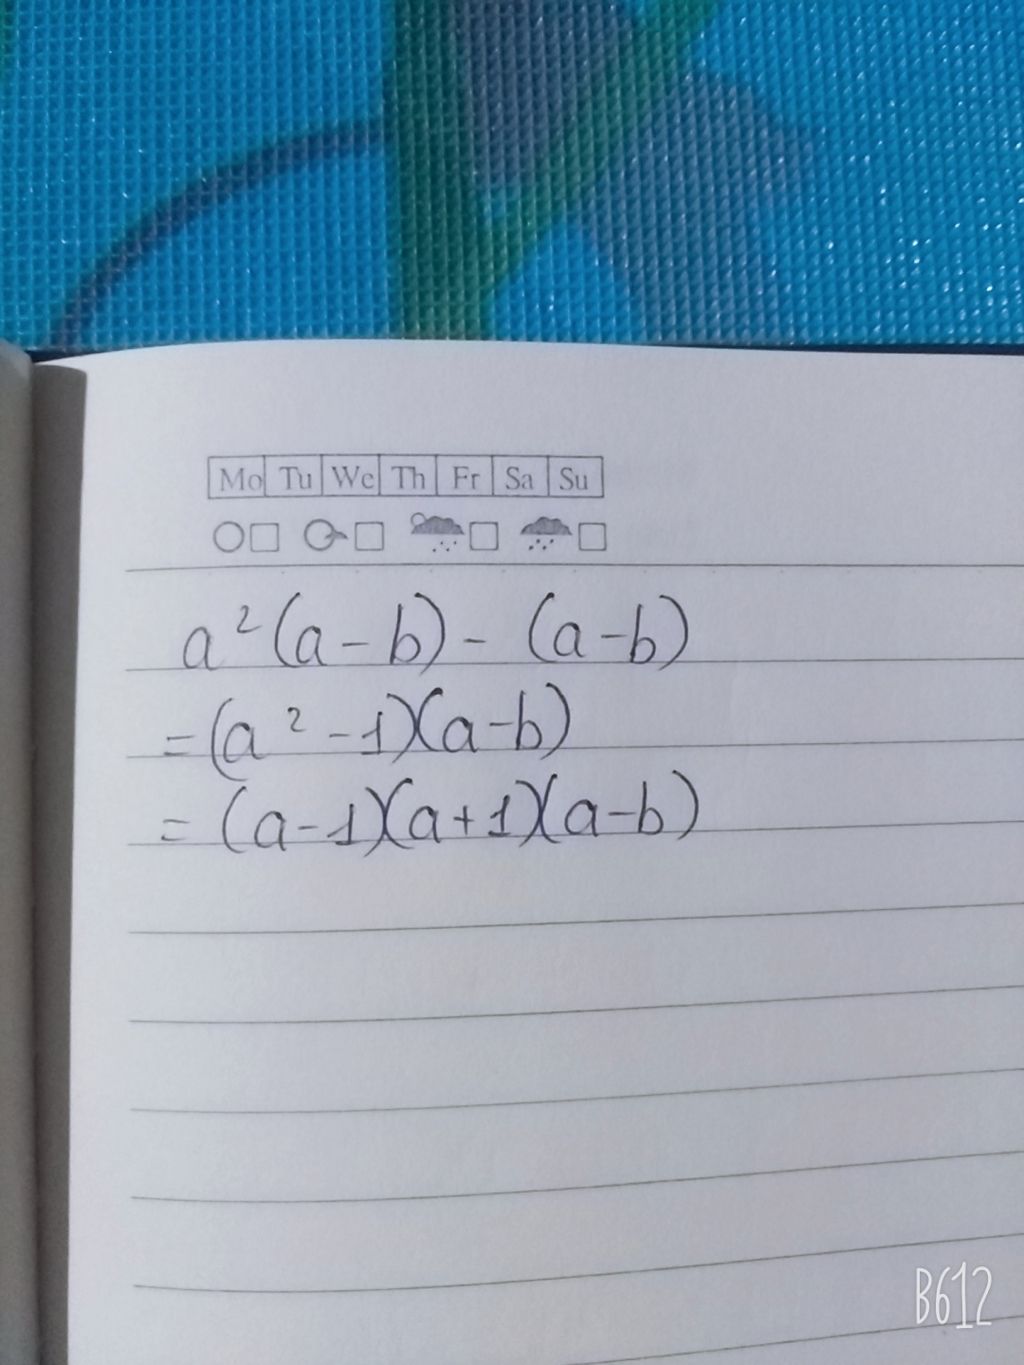 Mo Tu We Th Fr Sa Su
a²(a-b) - (a-b)
= (a²-1)(a-b)
= (a-1)(a+1)(a-b)
B612